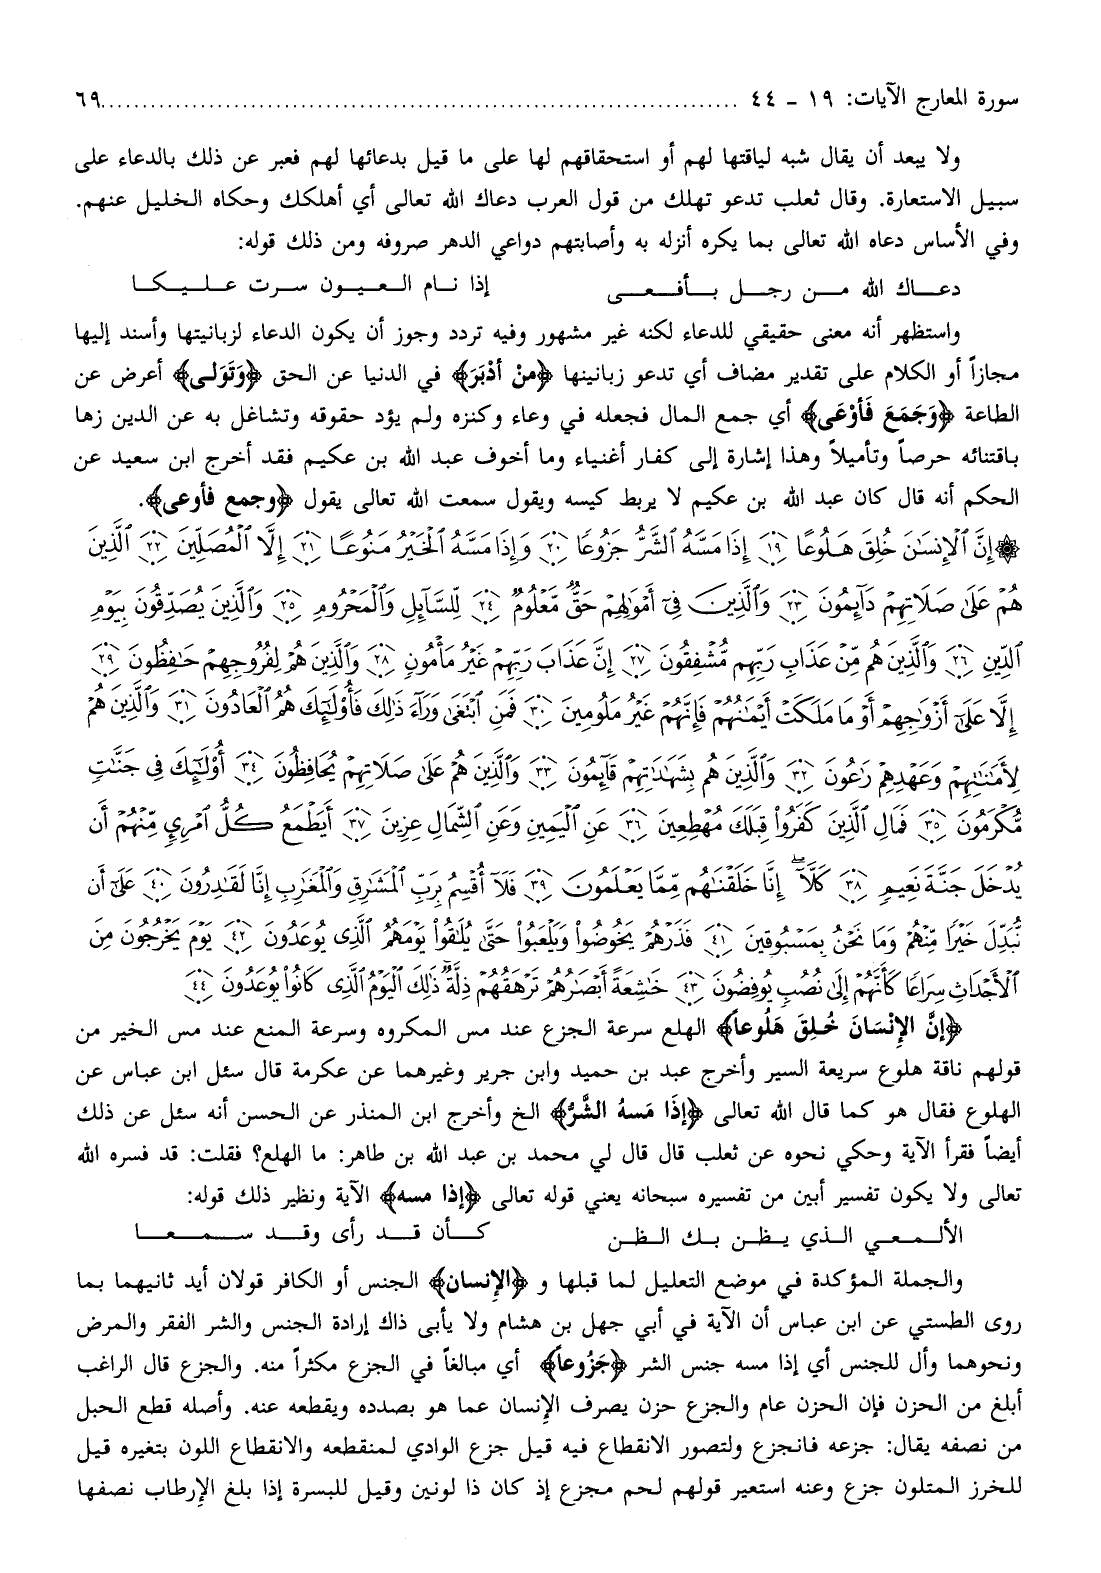 سورة المعارج الآيات: ١٩ - ٤٤ ........................................................................ ٦٩
ولا يبعد أن يقال شبه لياقتها لهم أو استحقاقهم لها على ما قيل بدعائها لهم فعبر عن ذلك بالدعاء على
سبيل الاستعارة. وقال ثعلب تدعو تهلك من قول العرب دعاك الله تعالى أي أهلكك وحكاه الخليل عنهم.
وفي الأساس دعاه الله تعالى بما يكره أنزله به وأصابتهم دواعي الدهر صروفه ومن ذلك قوله:
دعاك الله من رجل بأفعى    إذا نام العيون سرت عليكا
واستظهر أنه معنى حقيقي للدعاء لكنه غير مشهور وفيه تردد وجوز أن يكون الدعاء لزبانيتها وأسند إليها
مجازاً أو الكلام على تقدير مضاف أي تدعو زبانيتها ﴿مَنْ أَدْبَرَ﴾ في الدنيا عن الحق ﴿وَتَوَلى﴾ أعرض عن
الطاعة ﴿وَجَمَعَ فَأَوْعَى﴾ أي جمع المال فجعله في وعاء وكنزه ولم يؤد حقوقه وتشاغل به عن الدين زها
باقتنائه حرصاً وتأميلاً وهذا إشارة إلى كفار أغنياء وما أخوف عبد الله بن عكيم فقد أخرج ابن سعيد عن
الحكم أنه قال كان عبد الله بن عكيم لا يربط كيسه ويقول سمعت الله تعالى يقول ﴿وجمع فأوعى﴾.
۞ إِنَّ ٱلْإِنسَٰنَ خُلِقَ هَلُوعًا ١٩ إِذَا مَسَّهُ ٱلشَّرُّ جَزُوعًا ٢٠ وَإِذَا مَسَّهُ ٱلْخَيْرُ مَنُوعًا ٢١ إِلَّا ٱلْمُصَلِّينَ ٢٢ ٱلَّذِينَ
هُمْ عَلَىٰ صَلَاتِهِمْ دَآئِمُونَ ٢٣ وَٱلَّذِينَ فِىٓ أَمْوَٰلِهِمْ حَقٌّ مَّعْلُومٌ ٢٤ لِّلسَّآئِلِ وَٱلْمَحْرُومِ ٢٥ وَٱلَّذِينَ يُصَدِّقُونَ بِيَوْمِ
ٱلدِّينِ ٢٦ وَٱلَّذِينَ هُم مِّنْ عَذَابِ رَبِّهِم مُّشْفِقُونَ ٢٧ إِنَّ عَذَابَ رَبِّهِمْ غَيْرُ مَأْمُونٍ ٢٨ وَٱلَّذِينَ هُمْ لِفُرُوجِهِمْ حَٰفِظُونَ ٢٩
إِلَّا عَلَىٰٓ أَزْوَٰجِهِمْ أَوْ مَا مَلَكَتْ أَيْمَٰنُهُمْ فَإِنَّهُمْ غَيْرُ مَلُومِينَ ٣٠ فَمَنِ ٱبْتَغَىٰ وَرَآءَ ذَٰلِكَ فَأُو۟لَٰٓئِكَ هُمُ ٱلْعَادُونَ ٣١ وَٱلَّذِينَ هُمْ
لِأَمَٰنَٰتِهِمْ وَعَهْدِهِمْ رَٰعُونَ ٣٢ وَٱلَّذِينَ هُم بِشَهَٰدَٰتِهِمْ قَآئِمُونَ ٣٣ وَٱلَّذِينَ هُمْ عَلَىٰ صَلَاتِهِمْ يُحَافِظُونَ ٣٤ أُو۟لَٰٓئِكَ فِى جَنَّٰتٍ
مُّكْرَمُونَ ٣٥ فَمَالِ ٱلَّذِينَ كَفَرُوا۟ قِبَلَكَ مُهْطِعِينَ ٣٦ عَنِ ٱلْيَمِينِ وَعَنِ ٱلشِّمَالِ عِزِينَ ٣٧ أَيَطْمَعُ كُلُّ ٱمْرِئٍ مِّنْهُمْ أَن
يُدْخَلَ جَنَّةَ نَعِيمٍ ٣٨ كَلَّآ ۖ إِنَّا خَلَقْنَٰهُم مِّمَّا يَعْلَمُونَ ٣٩ فَلَآ أُقْسِمُ بِرَبِّ ٱلْمَشَٰرِقِ وَٱلْمَغَٰرِبِ إِنَّا لَقَٰدِرُونَ ٤٠ عَلَىٰٓ أَن
نُّبَدِّلَ خَيْرًا مِّنْهُمْ وَمَا نَحْنُ بِمَسْبُوقِينَ ٤١ فَذَرْهُمْ يَخُوضُوا۟ وَيَلْعَبُوا۟ حَتَّىٰ يُلَٰقُوا۟ يَوْمَهُمُ ٱلَّذِى يُوعَدُونَ ٤٢ يَوْمَ يَخْرُجُونَ مِنَ
ٱلْأَجْدَاثِ سِرَاعًا كَأَنَّهُمْ إِلَىٰ نُصُبٍ يُوفِضُونَ ٤٣ خَٰشِعَةً أَبْصَٰرُهُمْ تَرْهَقُهُمْ ذِلَّةٌ ۚ ذَٰلِكَ ٱلْيَوْمُ ٱلَّذِى كَانُوا۟ يُوعَدُونَ ٤٤
﴿إِنَّ الإِنْسَانَ خُلِقَ هَلُوعاً﴾ الهلع سرعة الجزع عند مس المكروه وسرعة المنع عند مس الخير من
قولهم ناقة هلوع سريعة السير وأخرج عبد بن حميد وابن جرير وغيرهما عن عكرمة قال سئل ابن عباس عن
الهلوع فقال هو كما قال الله تعالى ﴿إِذَا مَسهُ الشَّرُّ﴾ الخ وأخرج ابن المنذر عن الحسن أنه سئل عن ذلك
أيضاً فقرأ الآية وحكي نحوه عن ثعلب قال قال لي محمد بن عبد الله بن طاهر: ما الهلع؟ فقلت: قد فسره الله
تعالى ولا يكون تفسير أبين من تفسيره سبحانه يعني قوله تعالى ﴿إذا مسه﴾ الآية ونظير ذلك قوله:
الألمعي الذي يظن بك الظن    كأن قد رأى وقد سمعا
والجملة المؤكدة في موضع التعليل لما قبلها و ﴿الإنسان﴾ الجنس أو الكافر قولان أيد ثانيهما بما
روى الطستي عن ابن عباس أن الآية في أبي جهل بن هشام ولا يأبى ذاك إرادة الجنس والشر الفقر والمرض
ونحوهما وأل للجنس أي إذا مسه جنس الشر ﴿جَزُوعاً﴾ أي مبالغاً في الجزع مكثراً منه. والجزع قال الراغب
أبلغ من الحزن فإن الحزن عام والجزع حزن يصرف الإنسان عما هو بصدده ويقطعه عنه. وأصله قطع الحبل
من نصفه يقال: جزعه فانجزع ولتصور الانقطاع فيه قيل جزع الوادي لمنقطعه والانقطاع اللون بتغيره قيل
للخرز المتلون جزع وعنه استعير قولهم لحم مجزع إذ كان ذا لونين وقيل للبسرة إذا بلغ الإرطاب نصفها